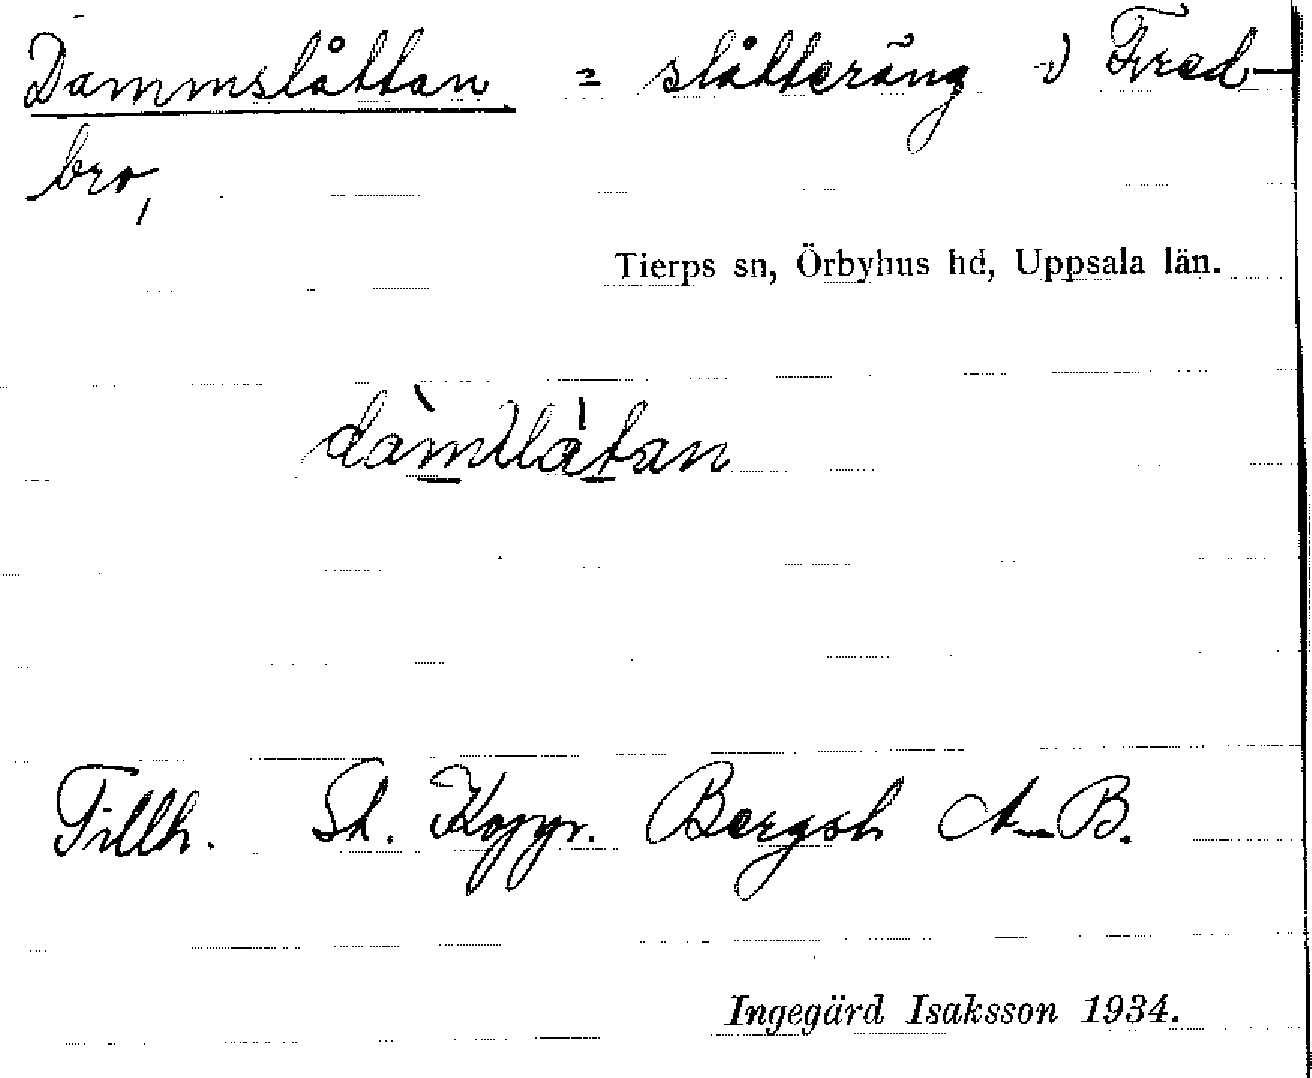 Dammslåttan = slåtteräng v Fred-
bro,
Tierps sn, Örbyhus hd, Uppsala län.
dàmllå̀tan
Tillh. St. Koppr. Bergsl. A-B.
Ingegärd Isaksson 1934.